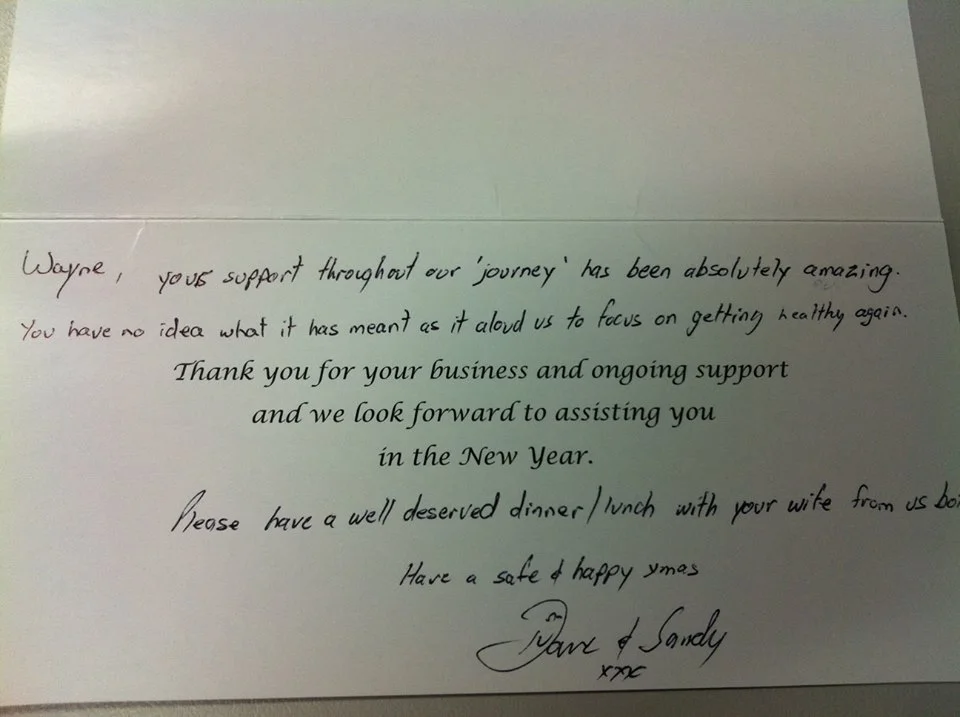 Wayne, your support throughout our 'journey' has been absolutely amazing.
You have no idea what it has meant as it aloud us to focus on getting healthy again.
Thank you for your business and ongoing support
and we look forward to assisting you
in the New Year.
Please have a well deserved dinner/lunch with your wife from us
Have a safe & happy xmas
Dave & Sandy
xxx